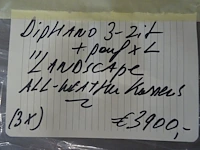 DIPHANO 3-zit
+ pouf XL
" LANDSCAPE
ALL-WEATHER Kussens
(3x) €3900,-